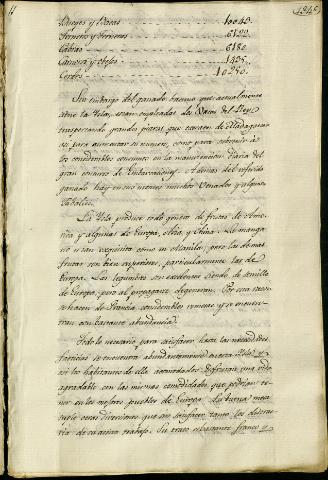 (1845)
Bueyes y Vacas 10049.
Terneros y Terneras 6199.
Cabras 6180
Carneros y obejas 1435.
Cerdos 10250.
Sin embargo del ganado bacuno que actualmente
tiene la Isla, estan empleados los Vasos del Rey
trasportando grandes piezas que extraen de Madagascar
su para aumentar su numero, como para subvenir à
los considerables consumos en la manutencion diaria del
gran numero de Embarcaciones. Ademas del referido
ganado hay en sus montes muchos Venados y algunos
Jabalies.
La Isla produce todo genero de frutas de Ame-
rica y algunas de Europa, Asia, y China. La manga
no es tan exquisita como en Manila; pero las demas
frutas son bien superiores, particularmente las de
Europa. Las legumbres son excelentes siendo de semilla
de Europa, pero al propagarse degeneran. Por esta razon
se hacen de Francia considerables remesas y se encuen-
tran con bastante abundancia.
Todo lo necesario para satisfacer hasta las necesidades
facticias se encuentra abundantemente en esta Isla, y
asi los habitantes de ella acomodados disfrutan una vida
agradable con las mismas comodidades que podrian te-
ner en los mejores pueblos de Europa. La buena mesa
suple otras diversiones que no satisfacen tanto los
de su activo trabajo. Su trato es bastante franco y